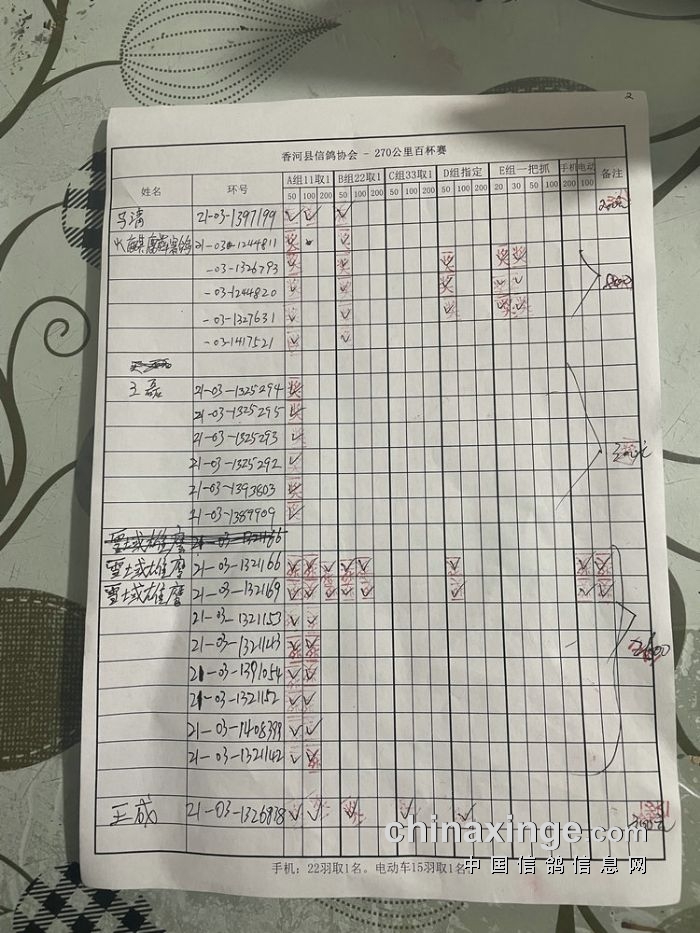 2
香河县信鸽协会 - 270公里百杯赛
姓名 环号 A组11取1 B组22取1 C组33取1 D组指定 E组一把抓 手机 电动 备注
50 100 200 50 100 200 50 100 200 50 100 200 20 30 50 100 200 100
21-03-1397199
21-03-1244811
-03-1326793
-03-1244820
-03-1327631
-03-1417521
王磊 21-03-1325294
21-03-1325295
21-03-1325293
21-03-1325292
21-03-1393803
21-03-1389909
雪域雄鹰 21-03-1321166
雪域雄鹰 21-03-1321169
21-03-1321153
21-03-1321143
21-03-1391054
21-03-1321152
21-03-1408399
21-03-1321142
王成 21-03-1326838
手机：22羽取1名。电动车15羽取1名
chinaxinge.com
中国信鸽信息网